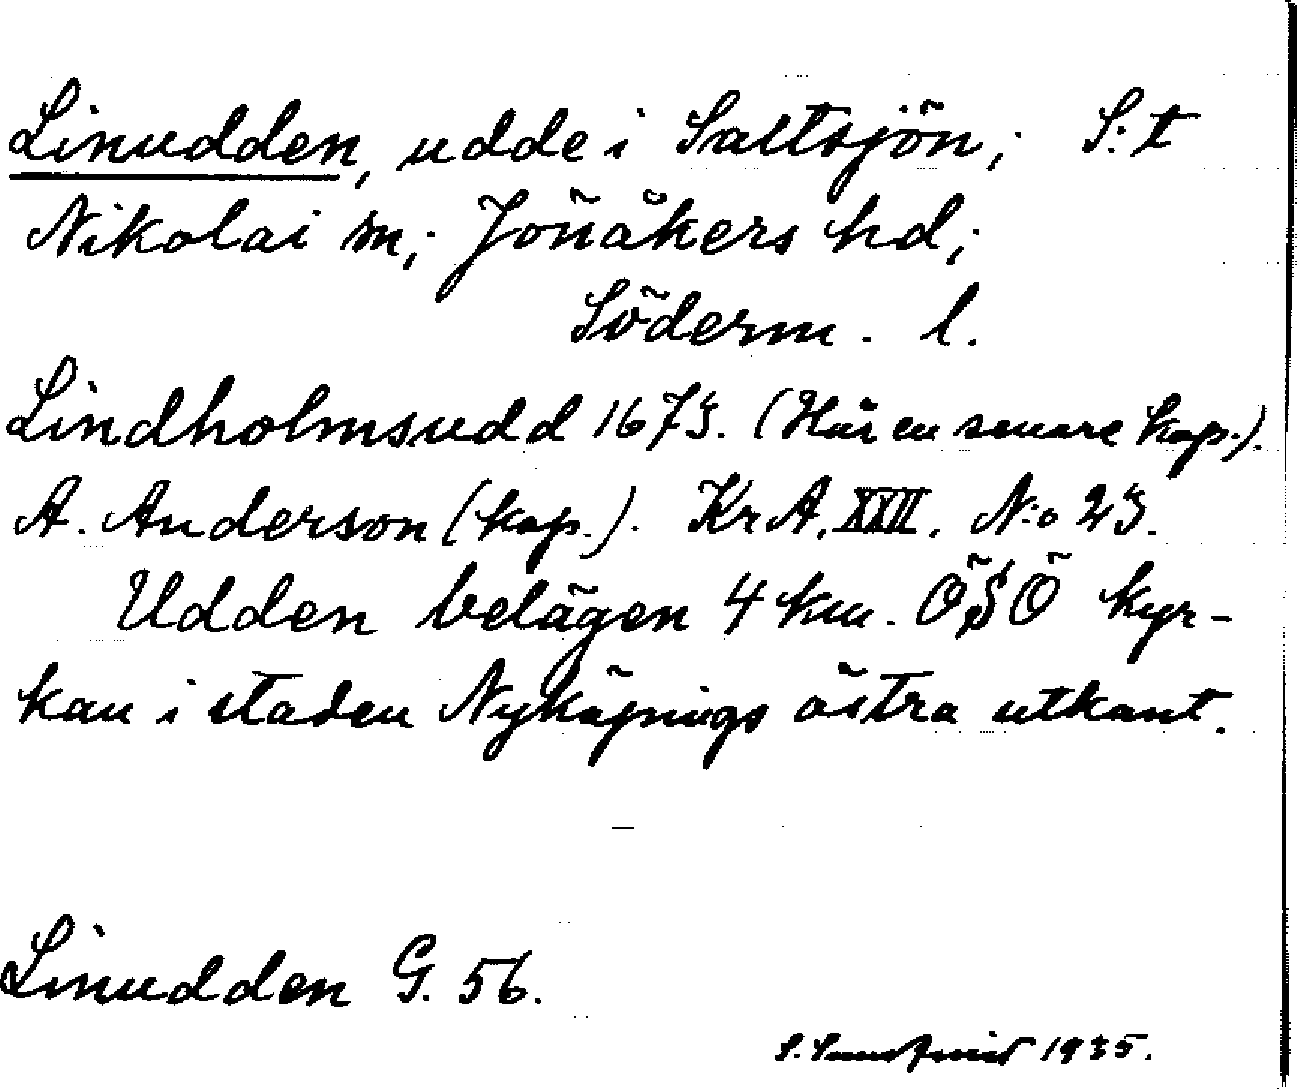 Linudden, udde i Saltsjön; S:t
Nikolai sn; Jönåkers hd;
Söderm. l.
Lindholmsudd 1673. (Här en senare kop.).
A. Anderson (kop.). KrA. XXII. N:o 23.
Udden belägen 4 km. ÖSÖ kyr-
kan i staden Nyköpings östra utkant.
Linudden G. 56.
S. 1935.